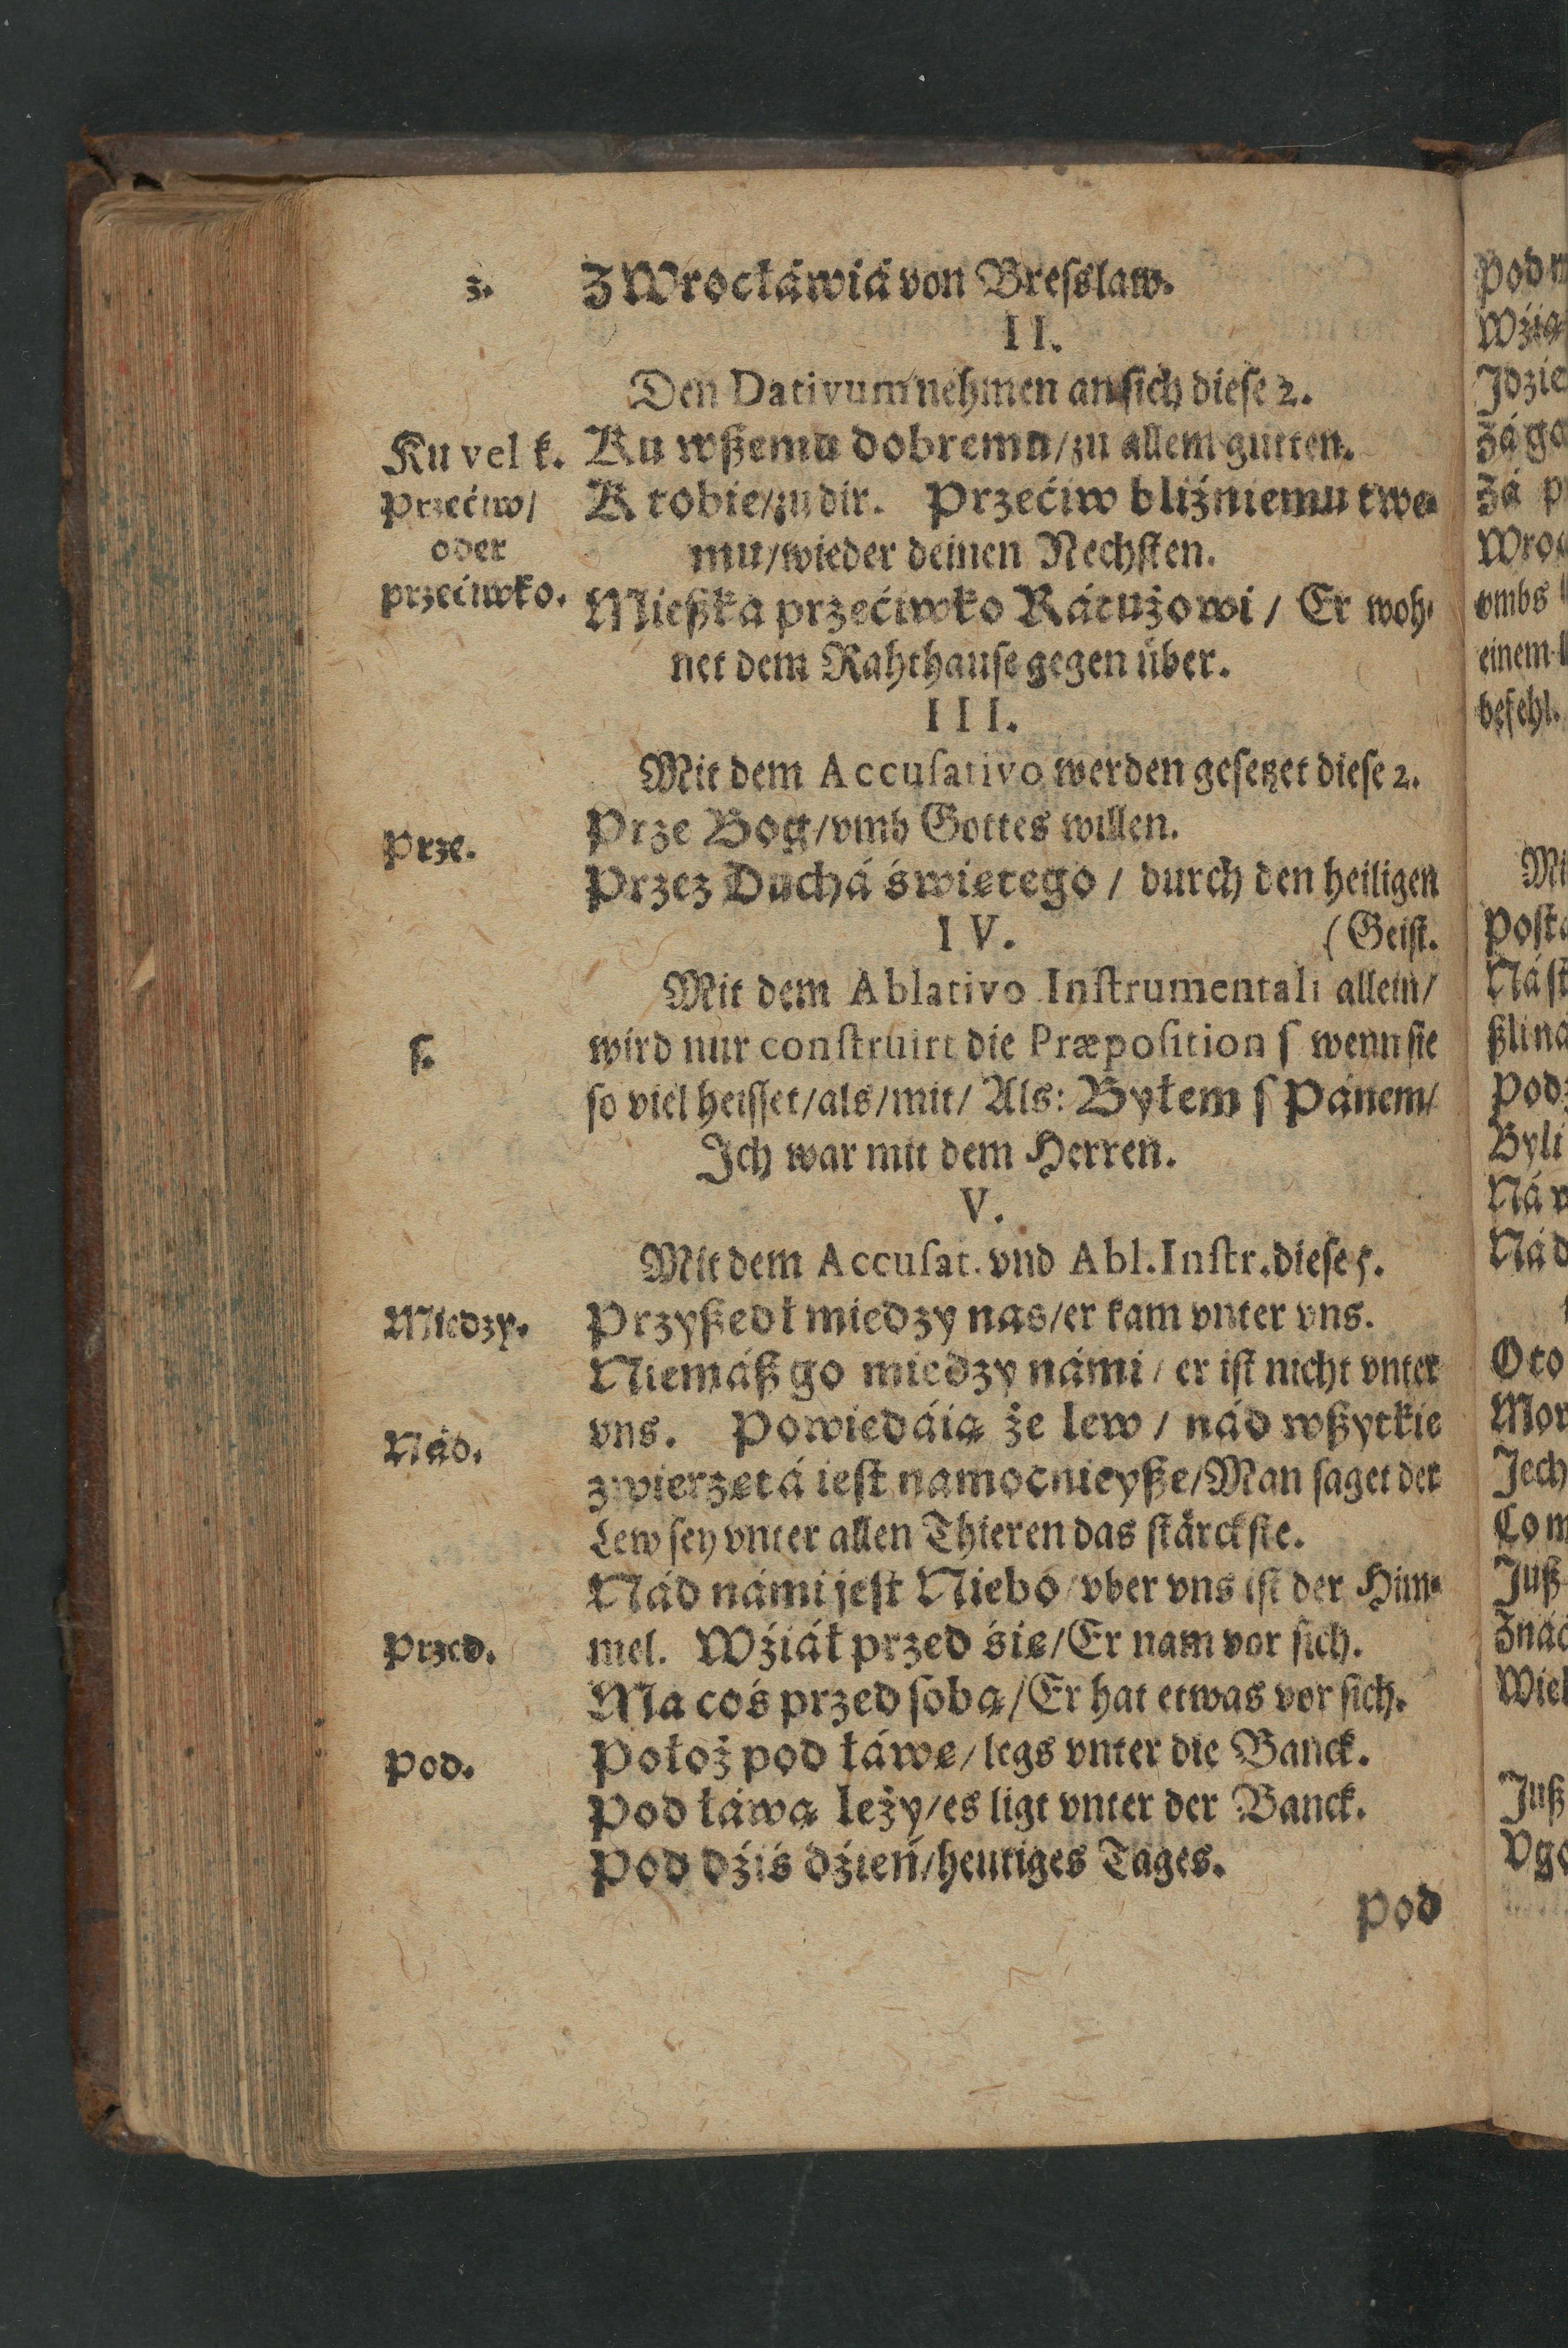 z. Z Wrocłáwiá von Breſslaw.
II.
Den Dativum nehmen an ſich dieſe 2.
Ku vel k. Ku wßemu dobremu/zu allem gutten.
Przećiw/ K tobie/zu dir. Przećiw bliźniemu twe⸗
oder mu/wieder deinen Nechſten.
przećiwko. Mießka przećiwko Rátużowi / Er woh⸗
net dem Rahthauſe gegen über.
III.
Mit dem Accuſativo werden geſetzet dieſe 2.
Prze. Prze Bog/vmb Gottes willen.
Przez Duchá świętego / durch den heiligen
IV. (Geiſt.
Mit dem Ablativo Inſtrumentali allein/
ſ. wird nur conſtruirt die Præpoſition ſ wenn ſie
ſo viel heiſſet/als/mit/ Als: Byłem ſ Pánem/
Ich war mit dem Herren.
V.
Mit dem Accuſat. vnd Abl. Inſtr. dieſe 5.
Miedzy. Przyßedł miedzy nas/er kam vnter vns.
Niemáß go miedzy námi / er iſt nicht vnter
Nád. vns. Powiedáią że lew / nád wßytkie
zwierzętá ieſt namocnieyße/Man ſaget der
Lew ſey vnter allen Thieren das ſtärckſte.
Nád námi jeſt Niebo/vber vns iſt der Him⸗
Przed. mel. Wźiáł przed śię/Er nam vor ſich.
Ma coś przed ſobą/Er hat etwas vor ſich.
Pod. Położ pod łáwę/legs vnter die Banck.
Pod łáwą leży/es ligt vnter der Banck.
Pod dźiś dźień/heutiges Tages.
Pod